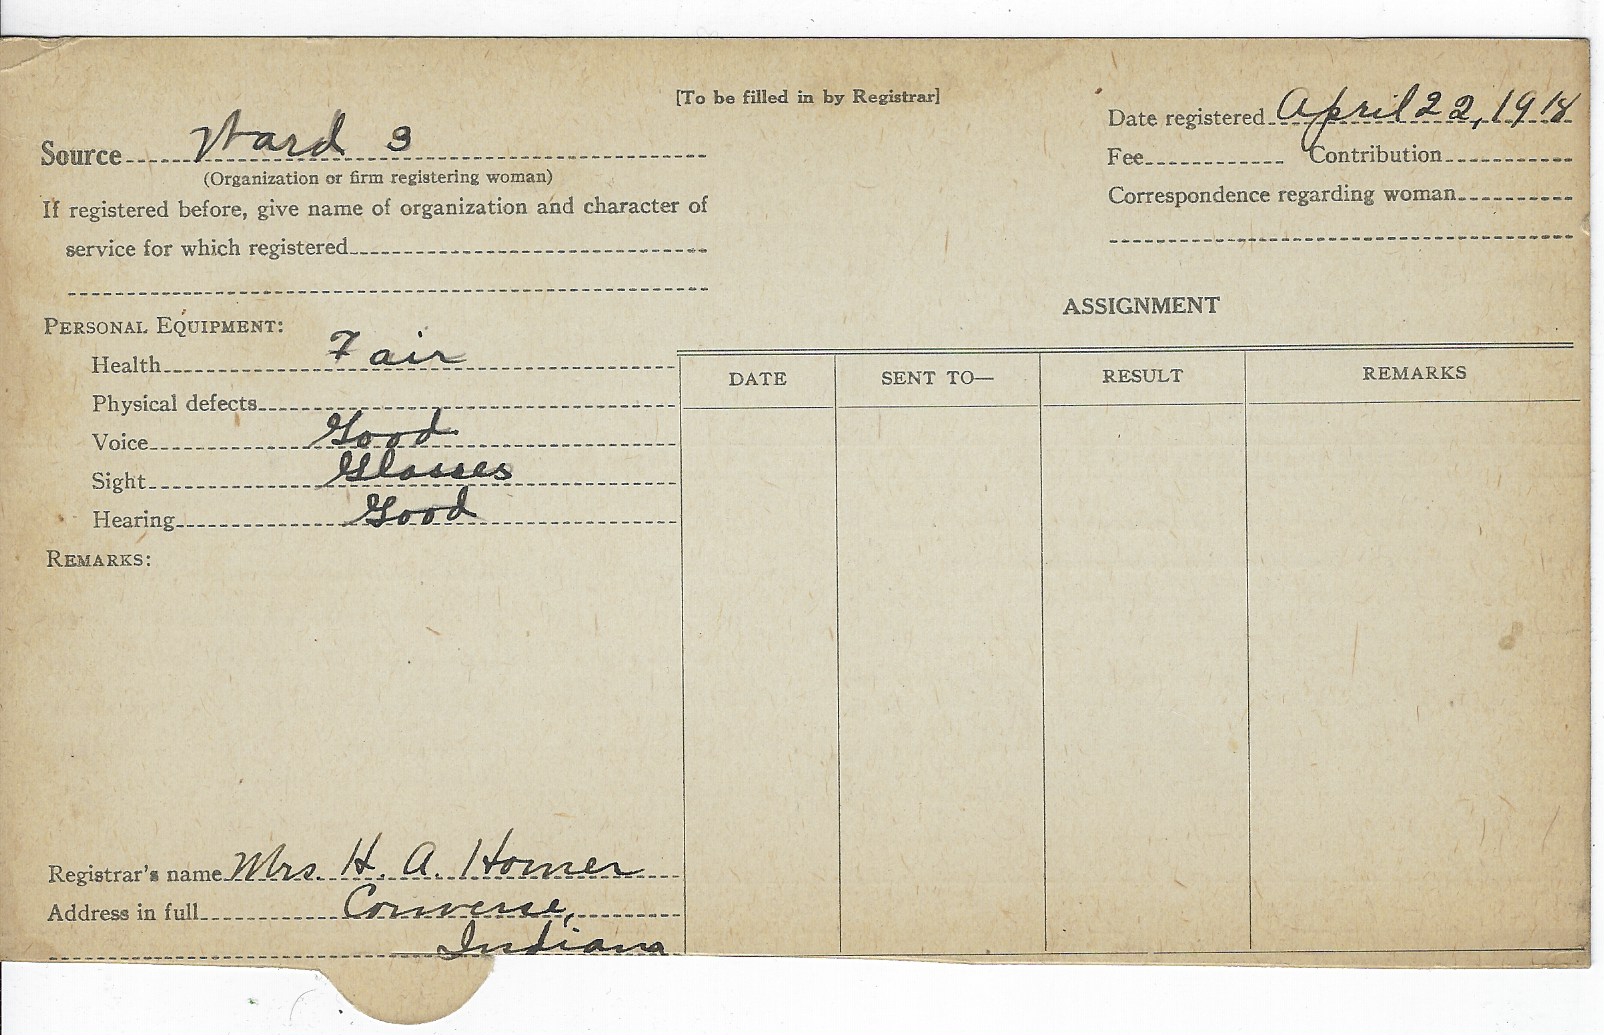 [To be filled in by Registrar]
Source Ward 3
(Organization or firm registering woman)
If registered before, give name of organization and character of
service for which registered
Date registered April 22, 1918
Fee Contribution
Correspondence regarding woman
PERSONAL EQUIPMENT:
Health Fair
Physical defects
Voice Good
Sight Glasses
Hearing Good
REMARKS:
ASSIGNMENT
DATE SENT TO— RESULT REMARKS
Registrar's name Mrs. H. A. Homer
Address in full Converse,
Indiana